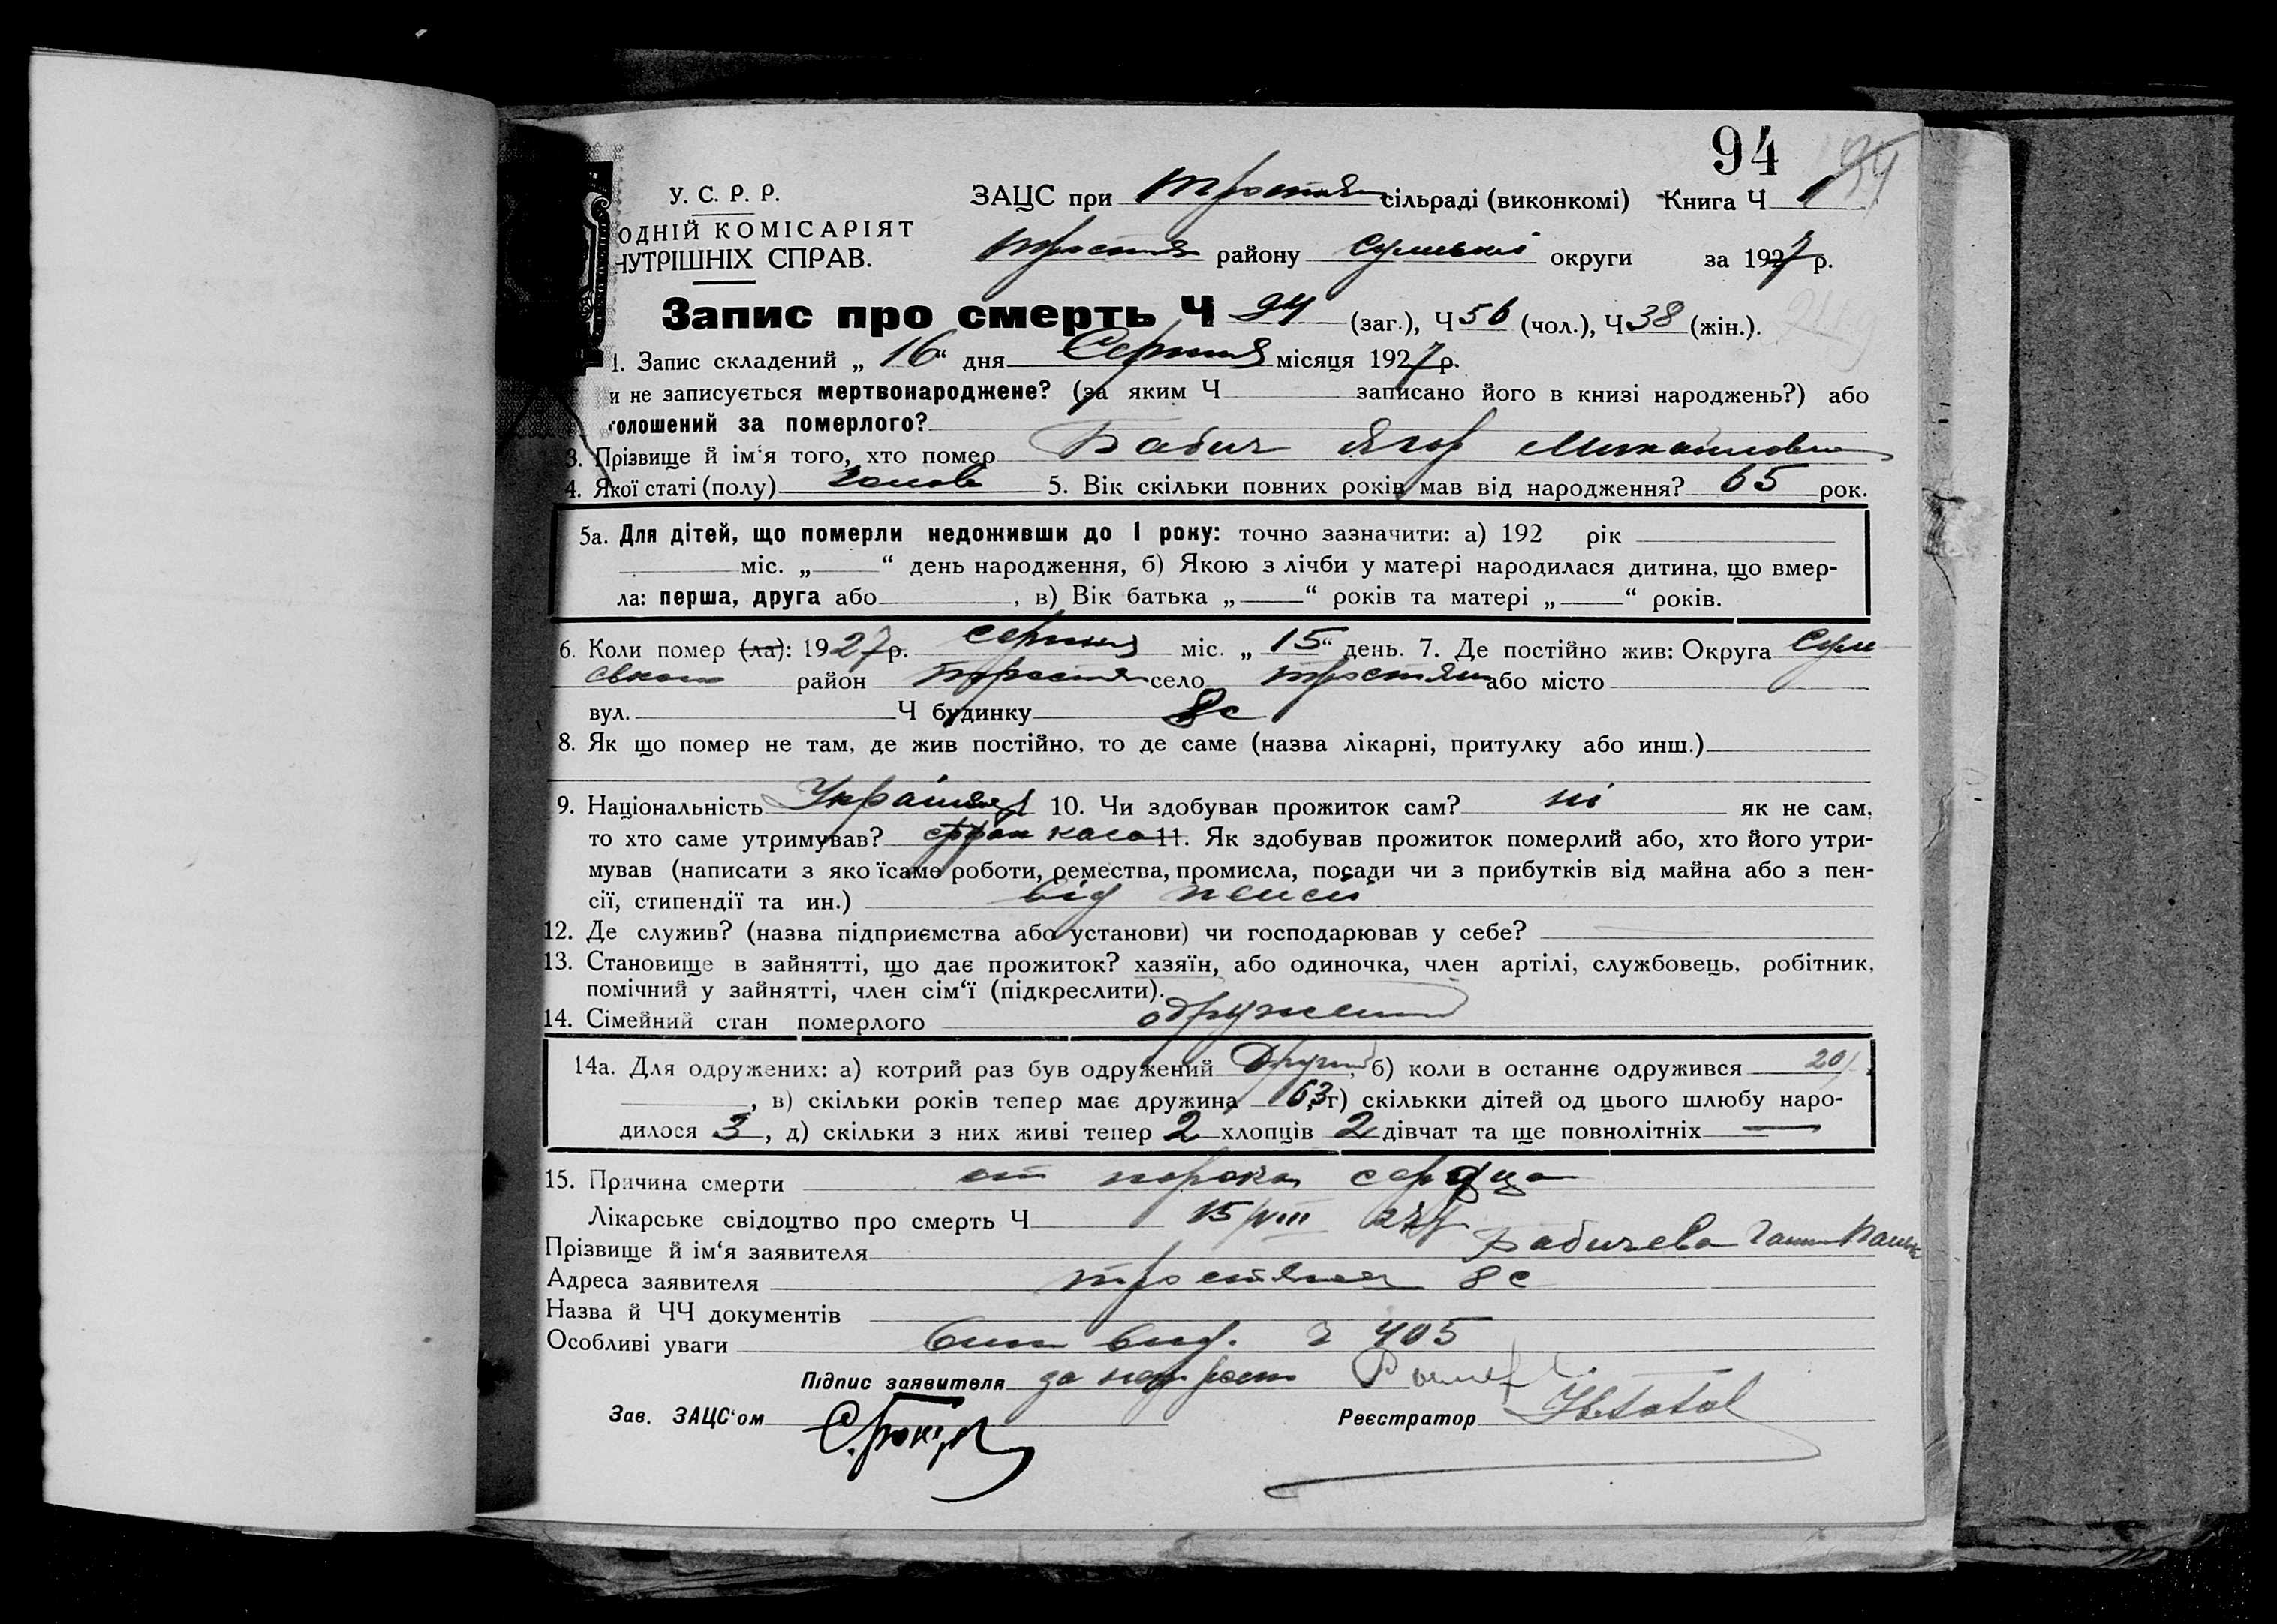 94
У. С. Р. Р.
ОДНІЙ КОМІСАРІЯТ
НУТРІШНІХ СПРАВ.
ЗАЦС при Тростян сільраді (виконкомі) Книга Ч 1
Тростян району Сумської округи за 1927 р.
Запис про смерть Ч 94 (заг.), Ч 56 (чол.), Ч 38 (жін.).
1. Запис складений „ 16 “ дня Серпня місяця 1927 р.
и не записується мертвонароджене? (за яким Ч записано його в книзі народжень?) або
голошений за померлого?
3. Прізвище й ім'я того, хто помер Бабич Ягор Михайлович
4. Якої статі (полу) чолов 5. Вік скільки повних років мав від народження? 65 рок.
5а. Для дітей, що померли недоживши до 1 року: точно зазначити: а) 192 рік
міс. „ “ день народження, б) Якою з лічби у матері народилася дитина, що вмер-
ла: перша, друга або , в) Вік батька „ “ років та матері „ “ років.
6. Коли помер (ла): 1927 р. серпня міс. „ 15 “ день. 7. Де постійно жив: Округа Сум
ська район Тростян село Тростян або місто
вул. Ч будинку 8с
8. Як що помер не там, де жив постійно, то де саме (назва лікарні, притулку або инш.)
9. Національність 10. Чи здобував прожиток сам? ні як не сам,
то хто саме утримував? каса 11. Як здобував прожиток померлий або, хто його утри-
мував (написати з якоїсаме роботи, ремества, промисла, посади чи з прибутків від майна або з пен-
сії, стипендії та ин.) від пенсії
12. Де служив? (назва підприємства або установи) чи господарював у себе?
13. Становище в зайнятті, що дає прожиток? хазяїн, або одиночка, член артілі, службовець, робітник,
помічний у зайнятті, член сім‘ї (підкреслити).
14. Сімейний стан померлого одружений
14а. Для одружених: а) котрий раз був одружений Другий, б) коли в останнє одружився 20
, в) скільки років тепер має дружина 63, г) скількки дітей од цього шлюбу наро-
дилося 3, д) скільки з них живі тепер 2 хлопців 2 дівчат та ще повнолітніх —
15. Причина смерти от порока сердца
Лікарське свідоцтво про смерть Ч 15/VIII 27 р
Прізвище й ім‘я заявителя Бабичева Ганна
Адреса заявителя Тростянец 8с
Назва й ЧЧ документів
Особливі уваги вид. ч 405
Підпис заявителя
Зав. ЗАЦС‘ом
Реєстратор